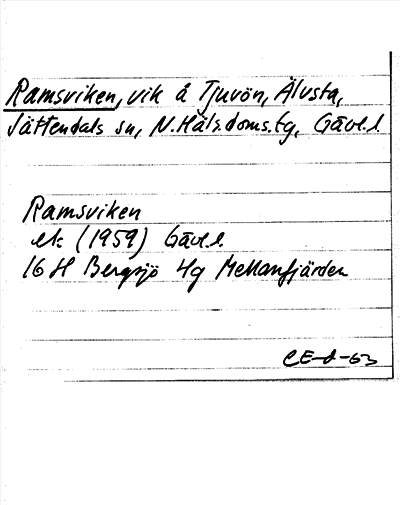 Ramsviken, vik å Tjuvön, Älvsta,
Jättendals sn, N. Häls. doms. tg, Gävl. l.
Ramsviken
ek (1959) Gävl. l.
16 H Bergsjö 4g Mellanfjärden